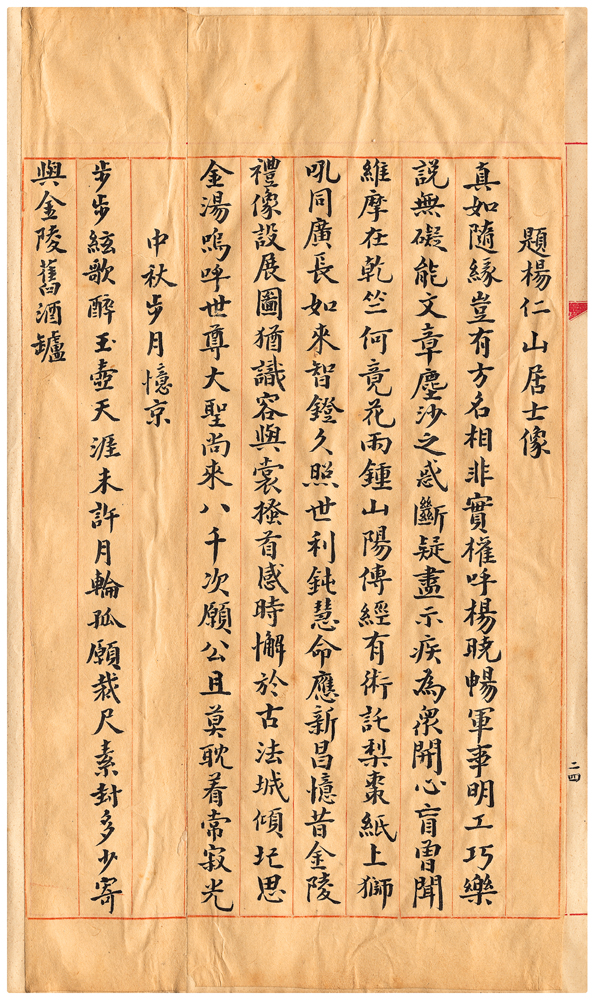 題楊仁山居士像
真如隨緣豈有方名相非實權呼楊曉暢軍事明工巧樂
說無礙能文章塵沙之惑斷疑盡示疾為衆開心盲曾聞
維摩在乾竺何竟花雨鍾山陽傳經有術託梨棗紙上獅
吼同廣長如來智鐙久照世利鈍慧命應新昌憶昔金陵
禮像設展圖猶識容與裳搔首感時懈於古法城傾圮思
金湯嗚呼世尊大聖尚來八千次願公且莫耽着常寂光
中秋步月憶京
步步絃歌醉玉壺天涯未許月輪孤願裁尺素封多少寄
與金陵舊酒壚
二四